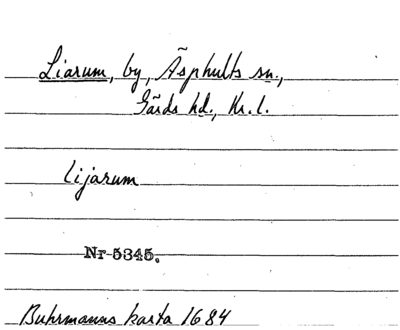 Liarum, by, Äsphults sn.,
Gärds hd., Kr. l.
Lijarum
Nr 5345.
Buhrmanns karta 1684